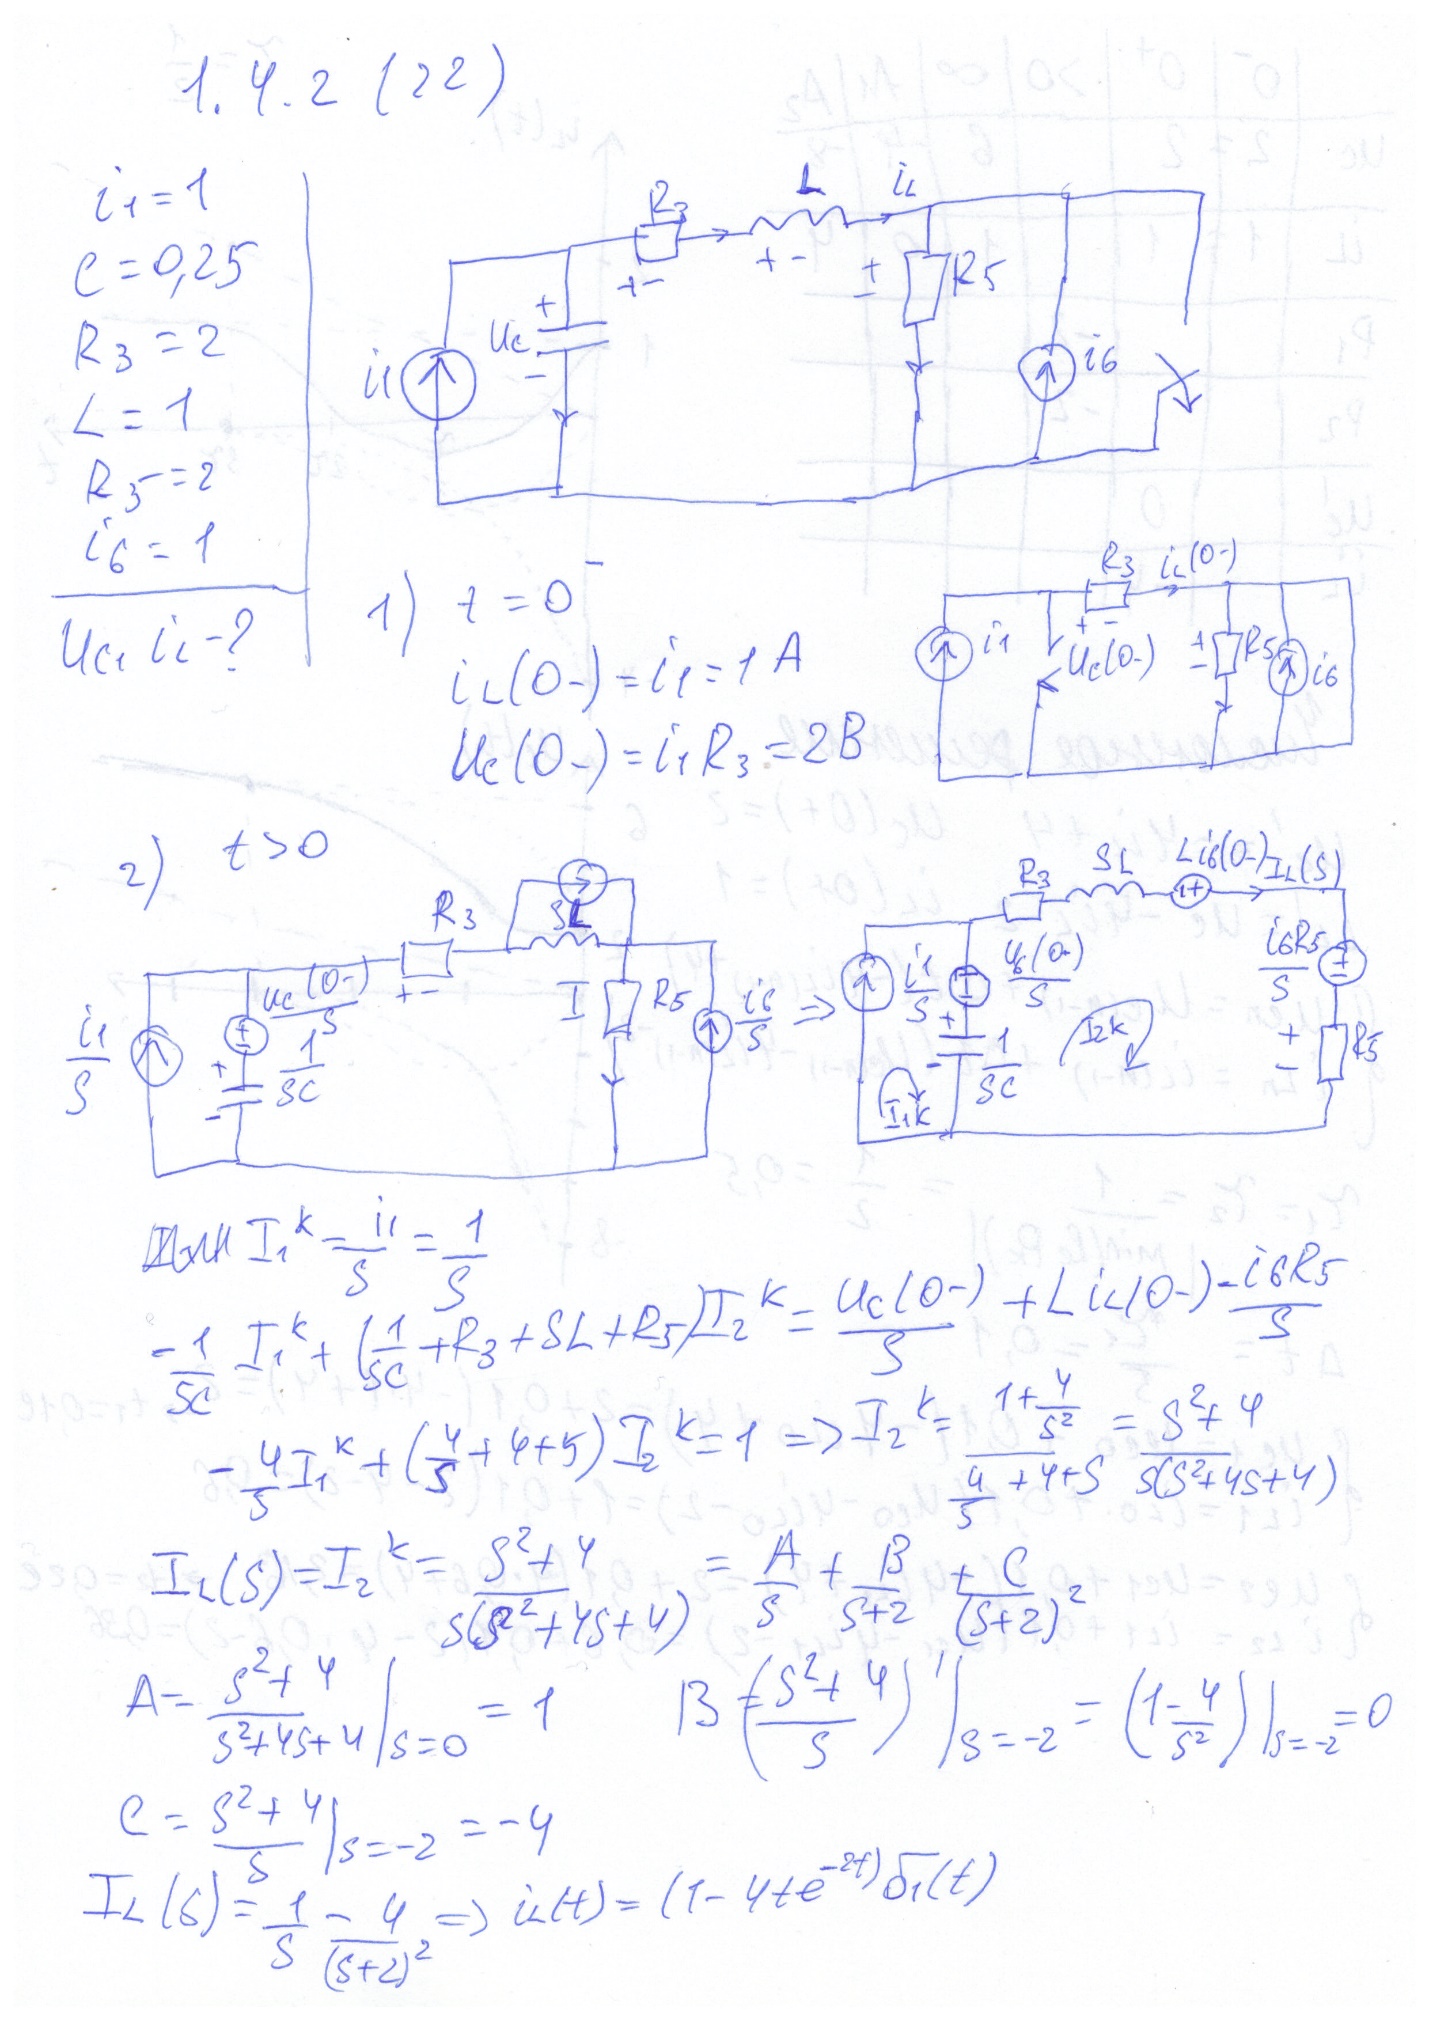 1.4.2 (22)
i1 = 1
C = 0,25
R3 = 2
L = 1
R5 = 2
i6 = 1
uc, iL - ?
i1 uc + - R3 + - L + - iL + - R5 i6
1) t = 0-
iL(0-) = i1 = 1 A
uc(0-) = i1 R3 = 2 В
i1 uc(0-) R3 + - iL(0-) + - R5 i6
2) t > 0
i1/s uc(0-)/s + - 1/sC R3 + - SL I R5 i6/s =>
i1/s I1k + - 1/sC R3 SL IL(s) I2k i6R5/s + - R5
I1^k = i1/s = 1/s
-1/sC I1^k + (1/sC + R3 + SL + R5) I2^k = uc(0-)/s + L iL(0-) - i6R5/s
-4/s I1^k + (4/s + 4 + s) I2^k = 1 => I2^k = (1 + 4/s²)/(4/s + 4 + s) = (s² + 4)/(s(s² + 4s + 4))
IL(s) = I2^k = (s² + 4)/(s(s² + 4s + 4)) = A/s + B/(s+2) + C/(s+2)²
A = (s² + 4)/(s² + 4s + 4) |s=0 = 1 B = ((s² + 4)/s)' |s=-2 = (1 - 4/s²) |s=-2 = 0
C = (s² + 4)/s |s=-2 = -4
IL(s) = 1/s - 4/(s+2)² => iL(t) = (1 - 4te^-2t) δ1(t)